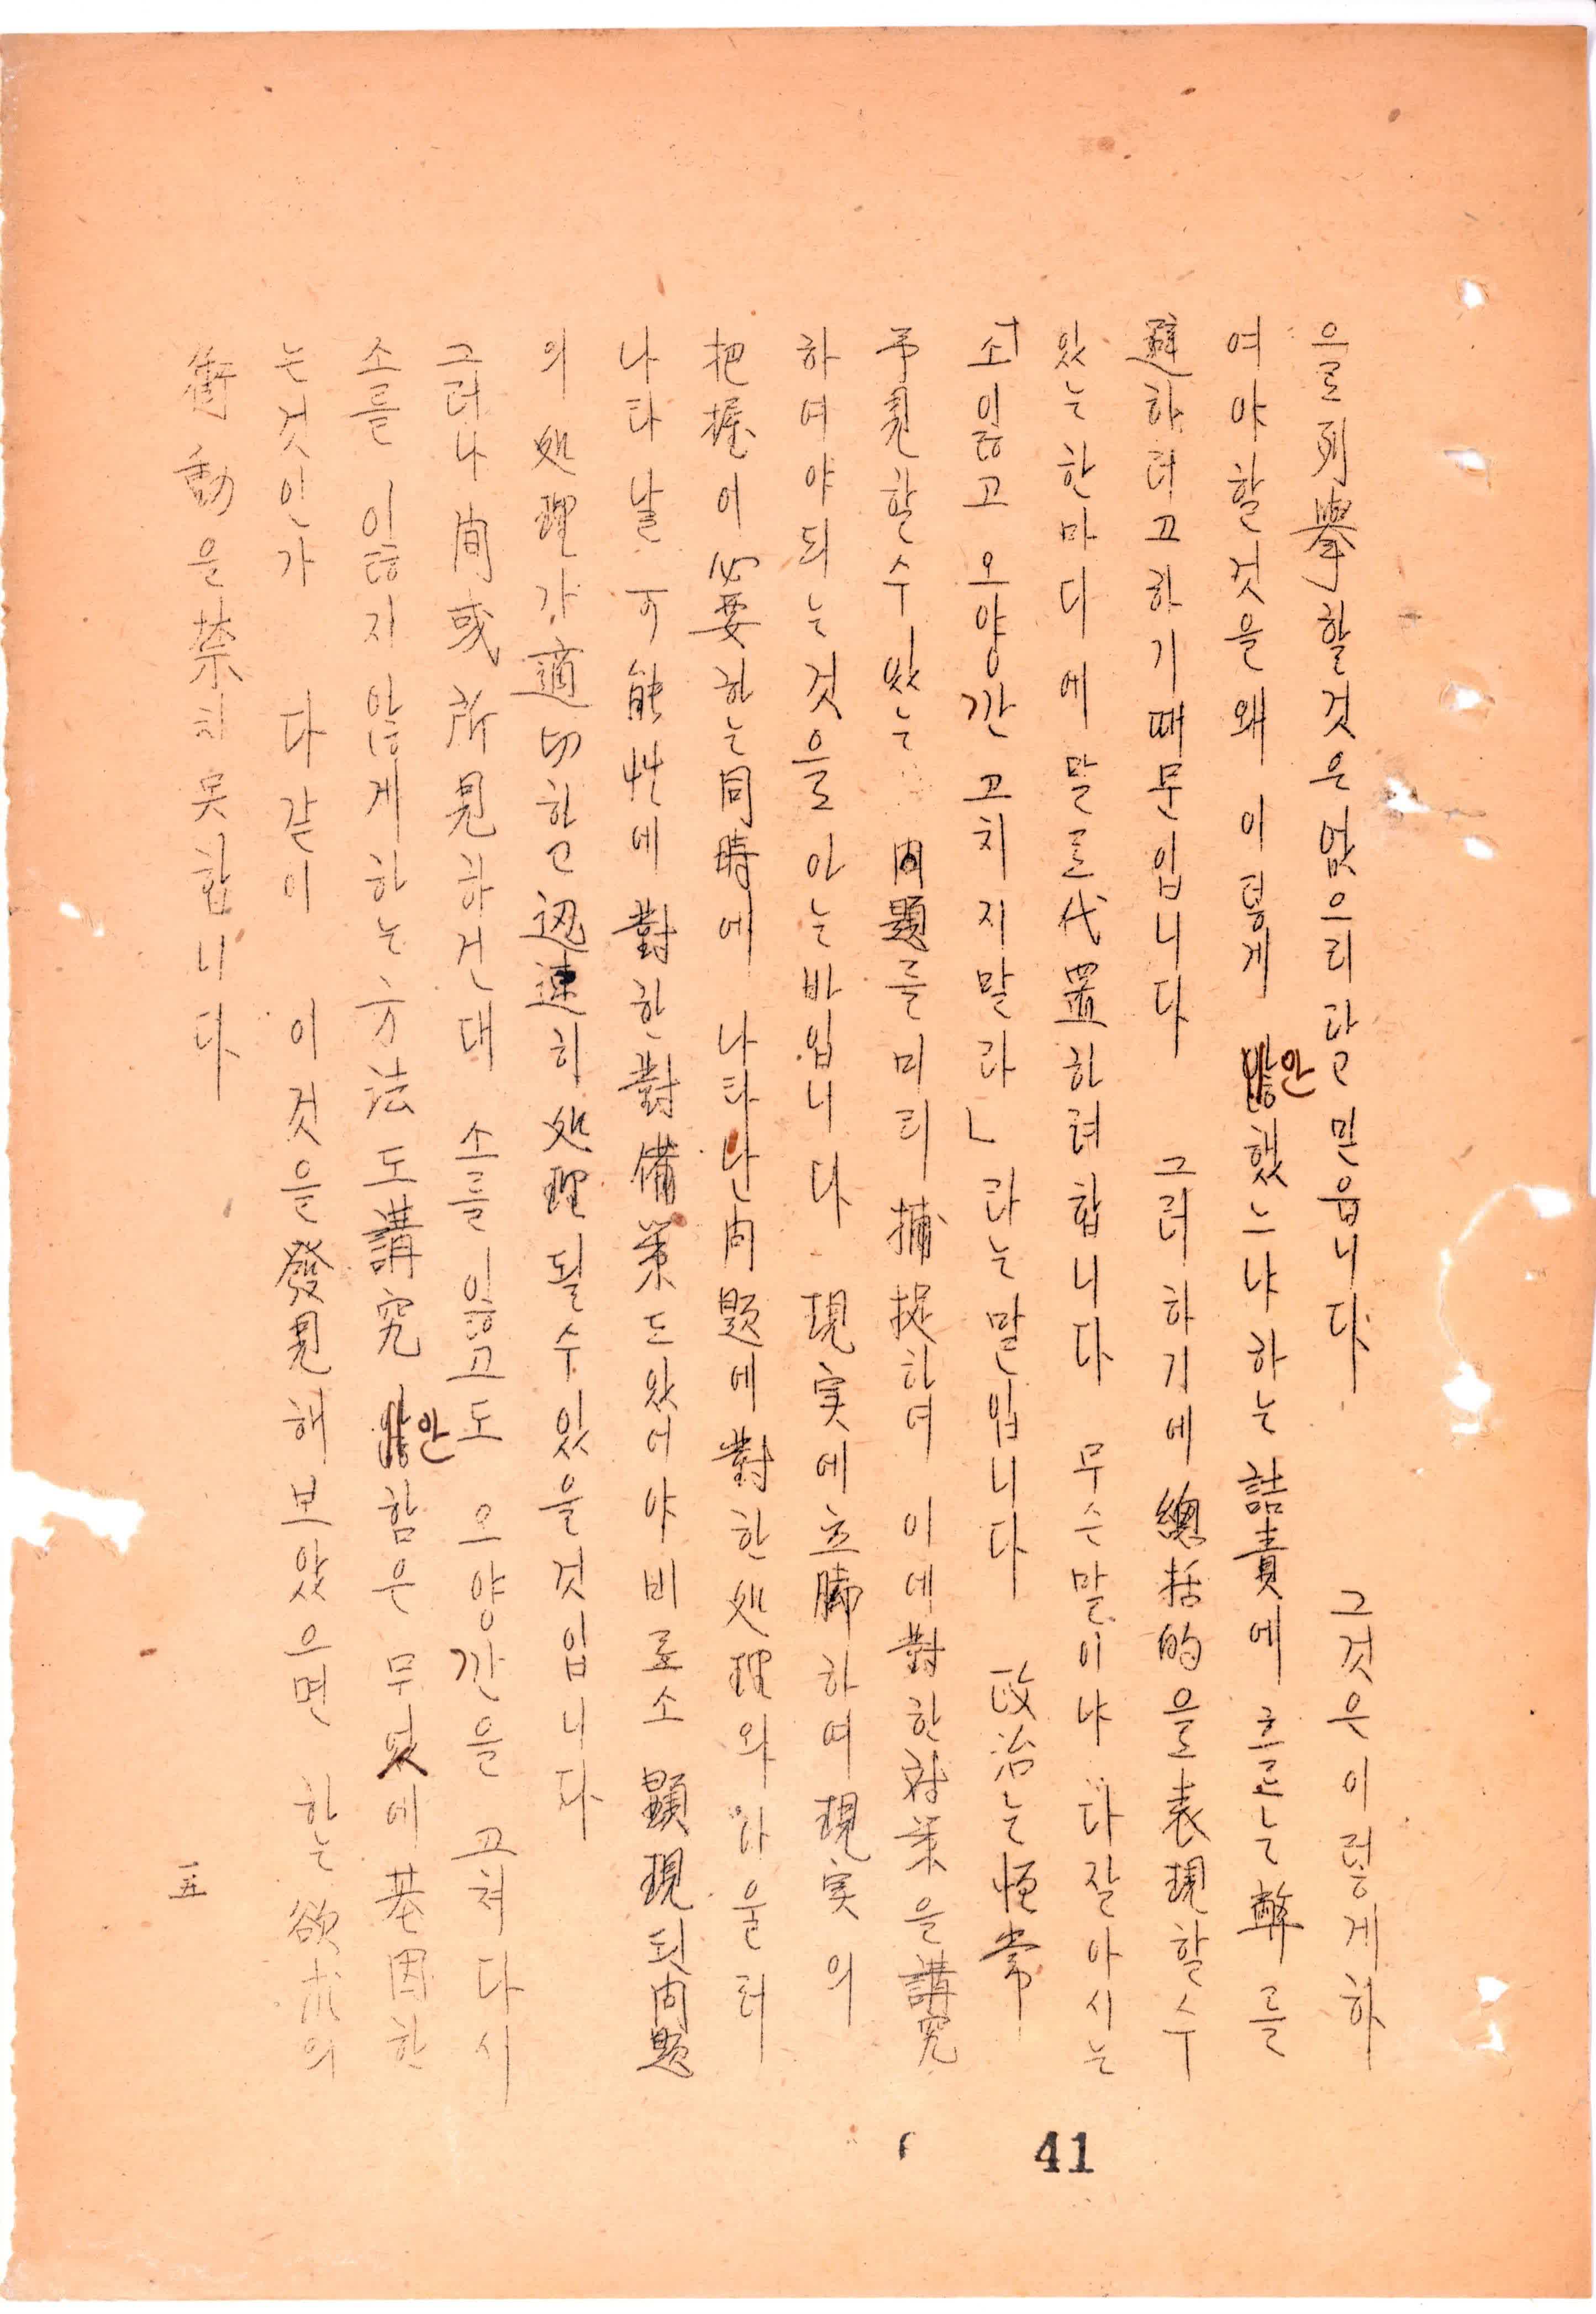 으로列擧할것은없으리라고믿읍니다 그것은이렇게하
여야할것을왜 이렇게 안했느냐하는詰責에흐르는弊를
避하려고하기때문입니다 그러하기에總括的을表現할수
있는한마디에말로代置하려합니다 무슨말이냐 다잘아시는
「소잃고 오양깐 고치지말라」라는말입니다 政治는恒常
予見할수있는 問題를미리捕捉하며 이에對한対策을講究
하여야되는것을아는바입니다 現実에立脚하며現実의
把握이必要하는同時에 나타난問題에對한処理와아울러
나타날可能性에對한對備策도있어야비로소顕現된問題
의処理가適切하고迅速히処理될수있을것입니다
그러나間或所見하건대 소를잃고도 오양깐을 고쳐다시
소를 잃지않게하는方法도講究안함은 무엇에基因한
는것인가 다같이 이것을發見해보았으면 하는欲求의
衝動을禁치못합니다
一五
41